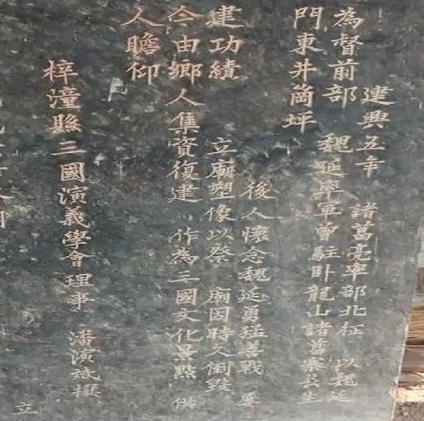 建興五年 諸葛亮率部北征 以魏延
為督前部 魏延率軍曾駐卧龍山諸葛寨長生
門東井箇坪
後人懷念魏延勇猛善戰 屢
建功績 立廟塑像以祭 廟因時久倒毀
今由鄉人集資復建 作為三國文化景點 供
人瞻仰
梓潼縣三國演義學會理事 潘演撰
立